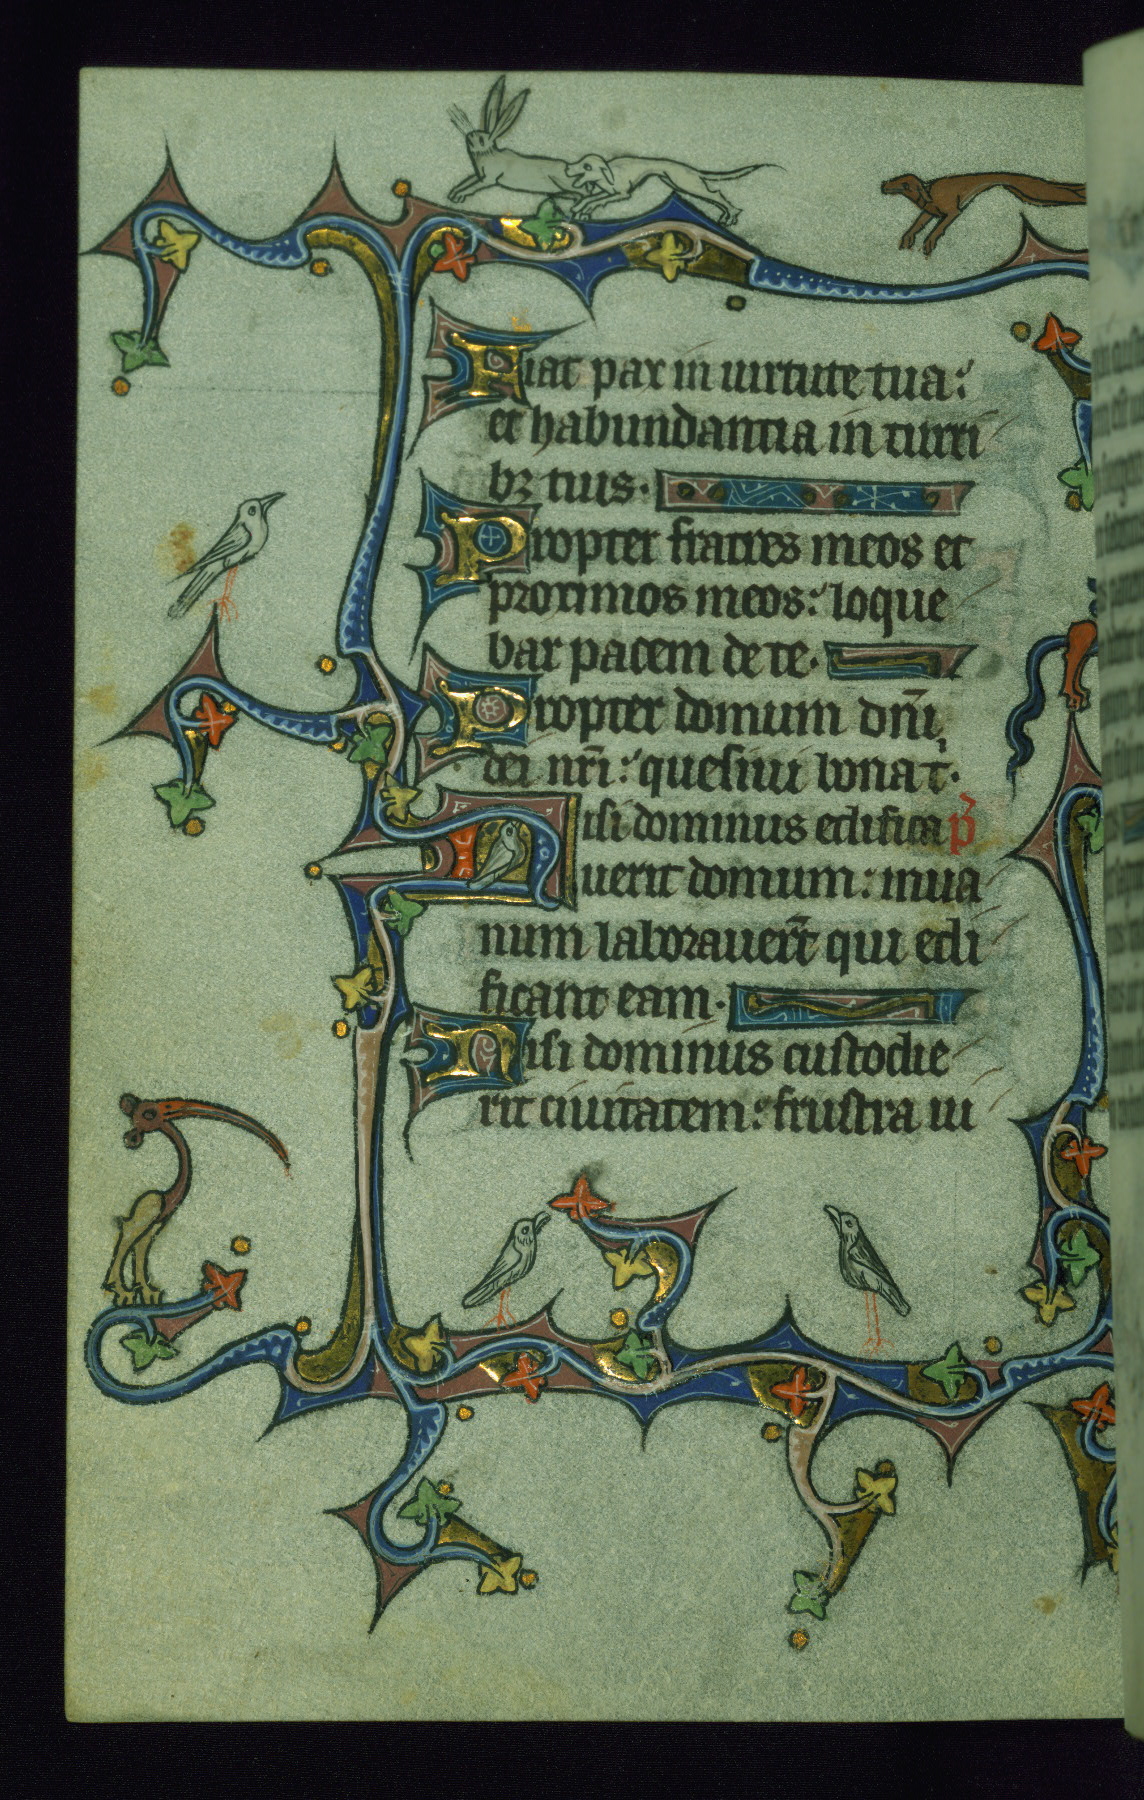 Fiat pax in uirtute tua:
et habundantia in turri
bꝫ tuis.
Propter fratres meos et
proximos meos: loque
bar pacem de te.
Propter domum dn̄i
dei nr̄i: quesiui bona t̄.
Nisi dominus edifica p̄
uerit domum: inua
num laborauer̄t qui edi
ficant eam.
Nisi dominus custodie
rit ciuitatem: frustra ui